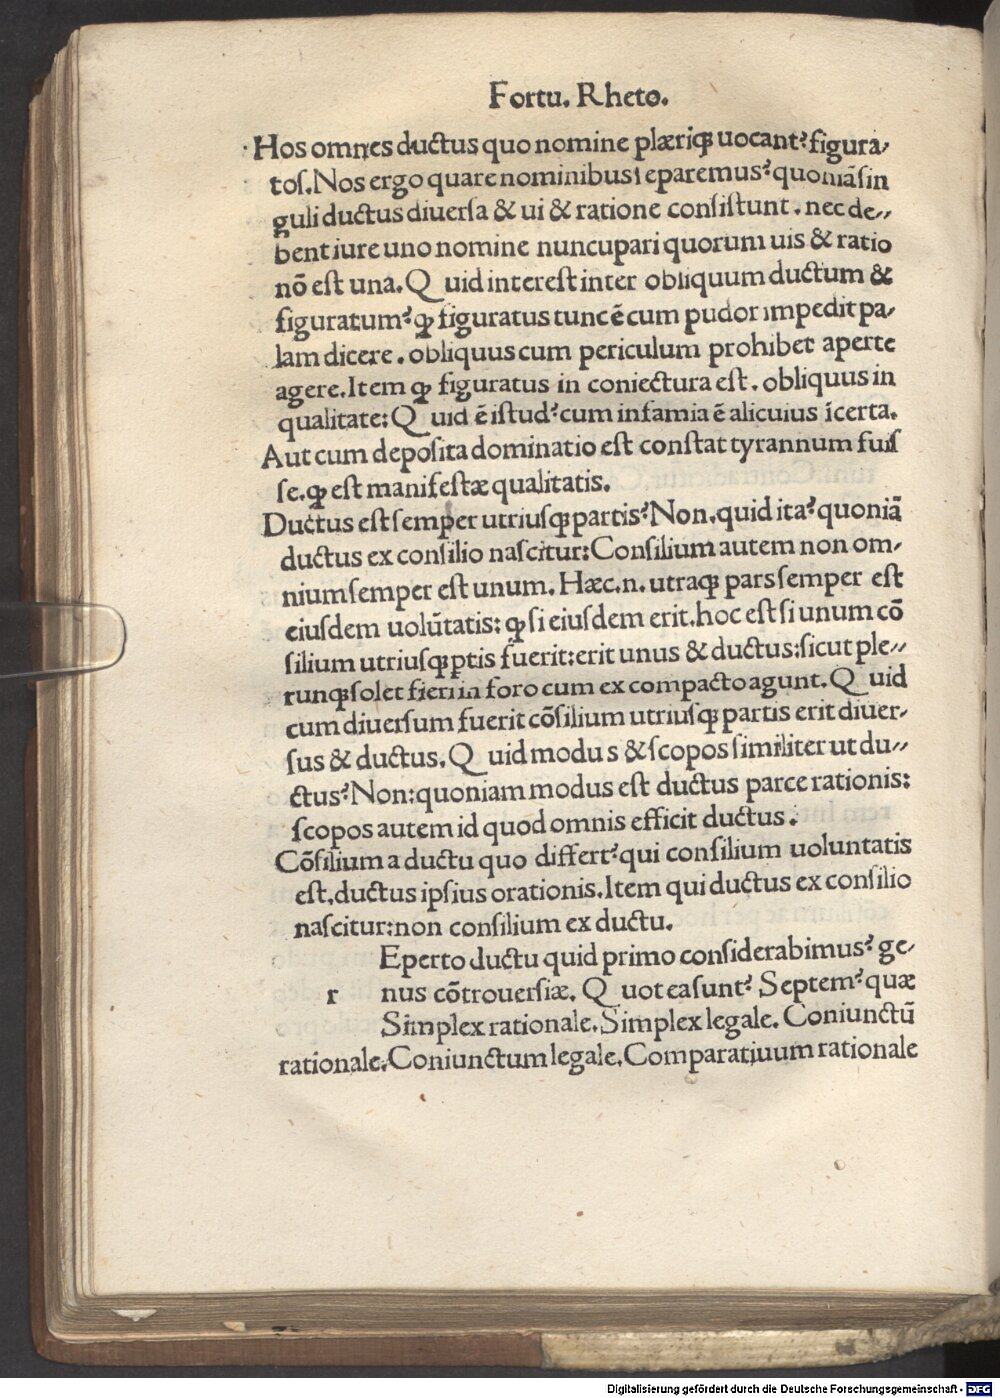 Fortu. Rheto.
Hos omnes ductus quo nomine plæriqꝫ uocant? figura-
tos. Nos ergo quare nominibus separemus? quoniã sin
guli ductus diuersa & ui & ratione consistunt. nec de-
bent iure uno nomine nuncupari quorum uis & ratio
nõ est una. Quid interest inter obliquum ductum &
figuratum? ꝙ figuratus tunc ẽ cum pudor impedit pa-
lam dicere. obliquus cum periculum prohibet aperte
agere. Item ꝙ figuratus in coniectura est. obliquus in
qualitate: Quid ẽ istud? cum infamia ẽ alicuius ĩcerta.
Aut cum deposita dominatio est constat tyrannum fuis
se. ꝙ est manifestæ qualitatis.
Ductus est semper utriusqꝫ partis? Non. quid ita? quoniã
ductus ex consilio nascitur: Consilium autem non om-
nium semper est unum. Hæc.n. utraqꝫ pars semper est
eiusdem uolũtatis: ꝙ si eiusdem erit. hoc est si unum cõ
silium utriusqꝫ ꝑtis fuerit: erit unus & ductus: sicut ple-
runqꝫ solet fieri in foro cum ex compacto agunt. Quid
cum diuersum fuerit cõsilium utriusqꝫ partis erit diuer-
sus & ductus. Quid modus & scopos similiter ut du-
ctus? Non: quoniam modus est ductus parce rationis:
scopos autem id quod omnis efficit ductus.
Cõsilium a ductu quo differt? qui consilium uoluntatis
est. ductus ipsius orationis. Item qui ductus ex consilio
nascitur: non consilium ex ductu.
Eperto ductu quid primo considerabimus? ge-
r nus cõtrouersiæ. Quot ea sunt? Septem? quæ
Simplex rationale. Simplex legale. Coniunctũ
rationale. Coniunctum legale. Comparatiuum rationale
Digitalisierung gefördert durch die Deutsche Forschungsgemeinschaft - DFG